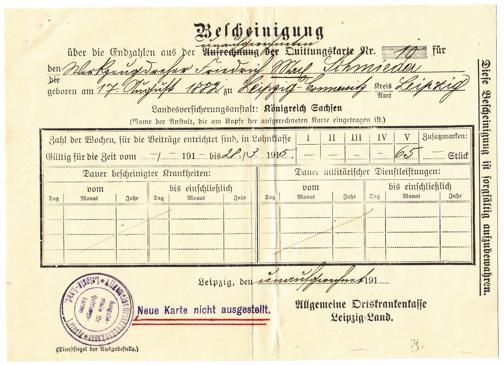 Bescheinigung
unaufgerechneten
über die Endzahlen aus der Aufrechnung der Quittungskarte Nr. 10 für
den
die Werkzeugdreher Friedrich Max Schmieder
geboren am 17. August 1882 zu Leipzig- Kreis Amt Leipzig
Landesversicherungsanstalt: Königreich Sachsen
(Name der Anstalt, die am Kopfe der aufgerechneten Karte eingetragen ist.)
Zahl der Wochen, für die Beiträge entrichtet sind, in Lohnklasse I II III IV V Zusatzmarken:
Gültig für die Zeit vom — / — 191 — bis 28./3. 1915. — — — — 65 — Stück
Dauer bescheinigter Krankheiten: Dauer militärischer Dienstleistungen:
vom bis einschließlich vom bis einschließlich
Tag Monat Jahr Tag Monat Jahr Tag Monat Jahr Tag Monat Jahr
Leipzig, den unaufgerechnet 191
Neue Karte nicht ausgestellt.
Allgemeine Ortskrankenkasse
Leipzig-Land.
(Dienstsiegel der Ausgabestelle.)
Diese Bescheinigung ist sorgfältig aufzubewahren.